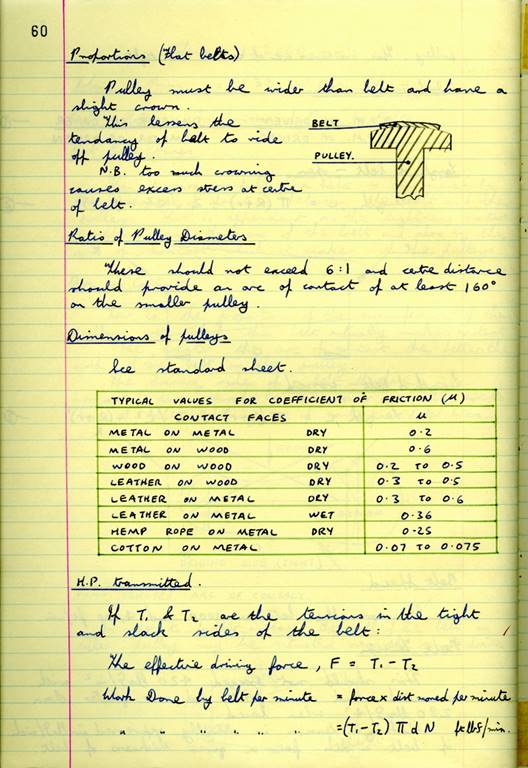 60
Proportions (Flat belts)
Pulley must be wider than belt and have a
slight crown.
This lessens the
tendancy of belt to ride
off pulley.
N.B. too much crowning
causes excess stress at centre
of belt.
BELT
PULLEY.
Ratio of Pulley Diameters
These should not exceed 6:1 and cetre distance
should provide an arc of contact of at least 160°
on the smaller pulley.
Dimensions of pulleys
See standard sheet.
TYPICAL VALUES FOR COEFFICIENT OF FRICTION (μ)
CONTACT FACES μ
METAL ON METAL DRY 0·2
METAL ON WOOD DRY 0·6
WOOD ON WOOD DRY 0·2 TO 0·5
LEATHER ON WOOD DRY 0·3 TO 0·5
LEATHER ON METAL DRY 0·3 TO 0·6
LEATHER ON METAL WET 0·36
HEMP ROPE ON METAL DRY 0·25
COTTON ON METAL 0·07 TO 0·075
H.P. transmitted.
If T₁ & T₂ are the tensions in the tight
and slack sides of the belt:
The effective driving force, F = T₁ - T₂
Work Done by belt per minute = force x dist moved per minute
" " " " " " = (T₁-T₂) π d N ft lbf/min.